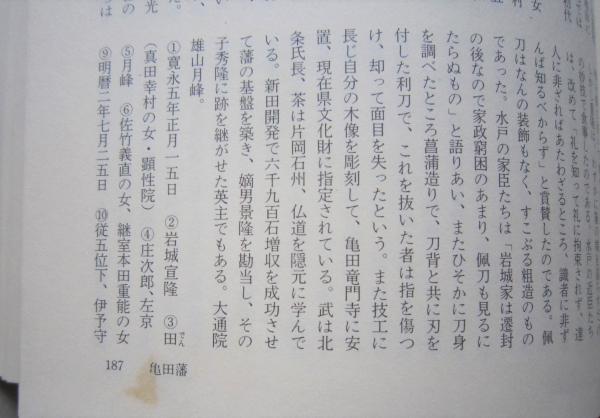 は、改めて「礼を知って礼に拘束されず、達
人に非ざればあたわざるところ、識者に非ず
んば知るべからず」と賞賛したのである。佩
刀はなんの装飾もなく、すこぶる粗造のもの
であった。水戸の家臣たちは「岩城家は遷封
の後なので家政窮困のあまり、佩刀も見るに
たらぬもの」と語りあい、またひそかに刀身
を調べたところ菖蒲造りで、刀背と共に刃を
付した利刀で、これを抜いた者は指を傷つ
け、却って面目を失ったという。また技工に
長じ自分の木像を彫刻して、亀田竜門寺に安
置、現在県文化財に指定されている。武は北
条氏長、茶は片岡石州、仏道を隠元に学んで
いる。新田開発で六千九百石増収を成功させ
て藩の基盤を築き、嫡男景隆を勘当し、その
子秀隆に跡を継がせた英主でもある。大通院
雄山月峰。
①寛永五年正月一五日 ②岩城宣隆 ③田
でん
(真田幸村の女・顕性院) ④庄次郎、左京
⑤月峰 ⑥佐竹義直の女、継室本田重能の女
⑨明暦二年七月二五日 ⑩従五位下、伊予守
187 亀田藩